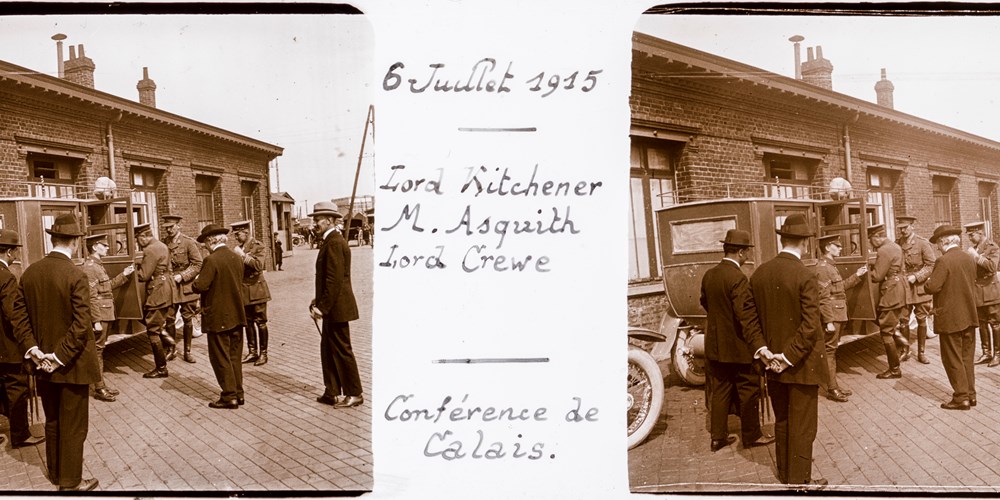 6 Juillet 1915
Lord Kitchener
M. Asquith
Lord Crewe
Conférence de
Calais.